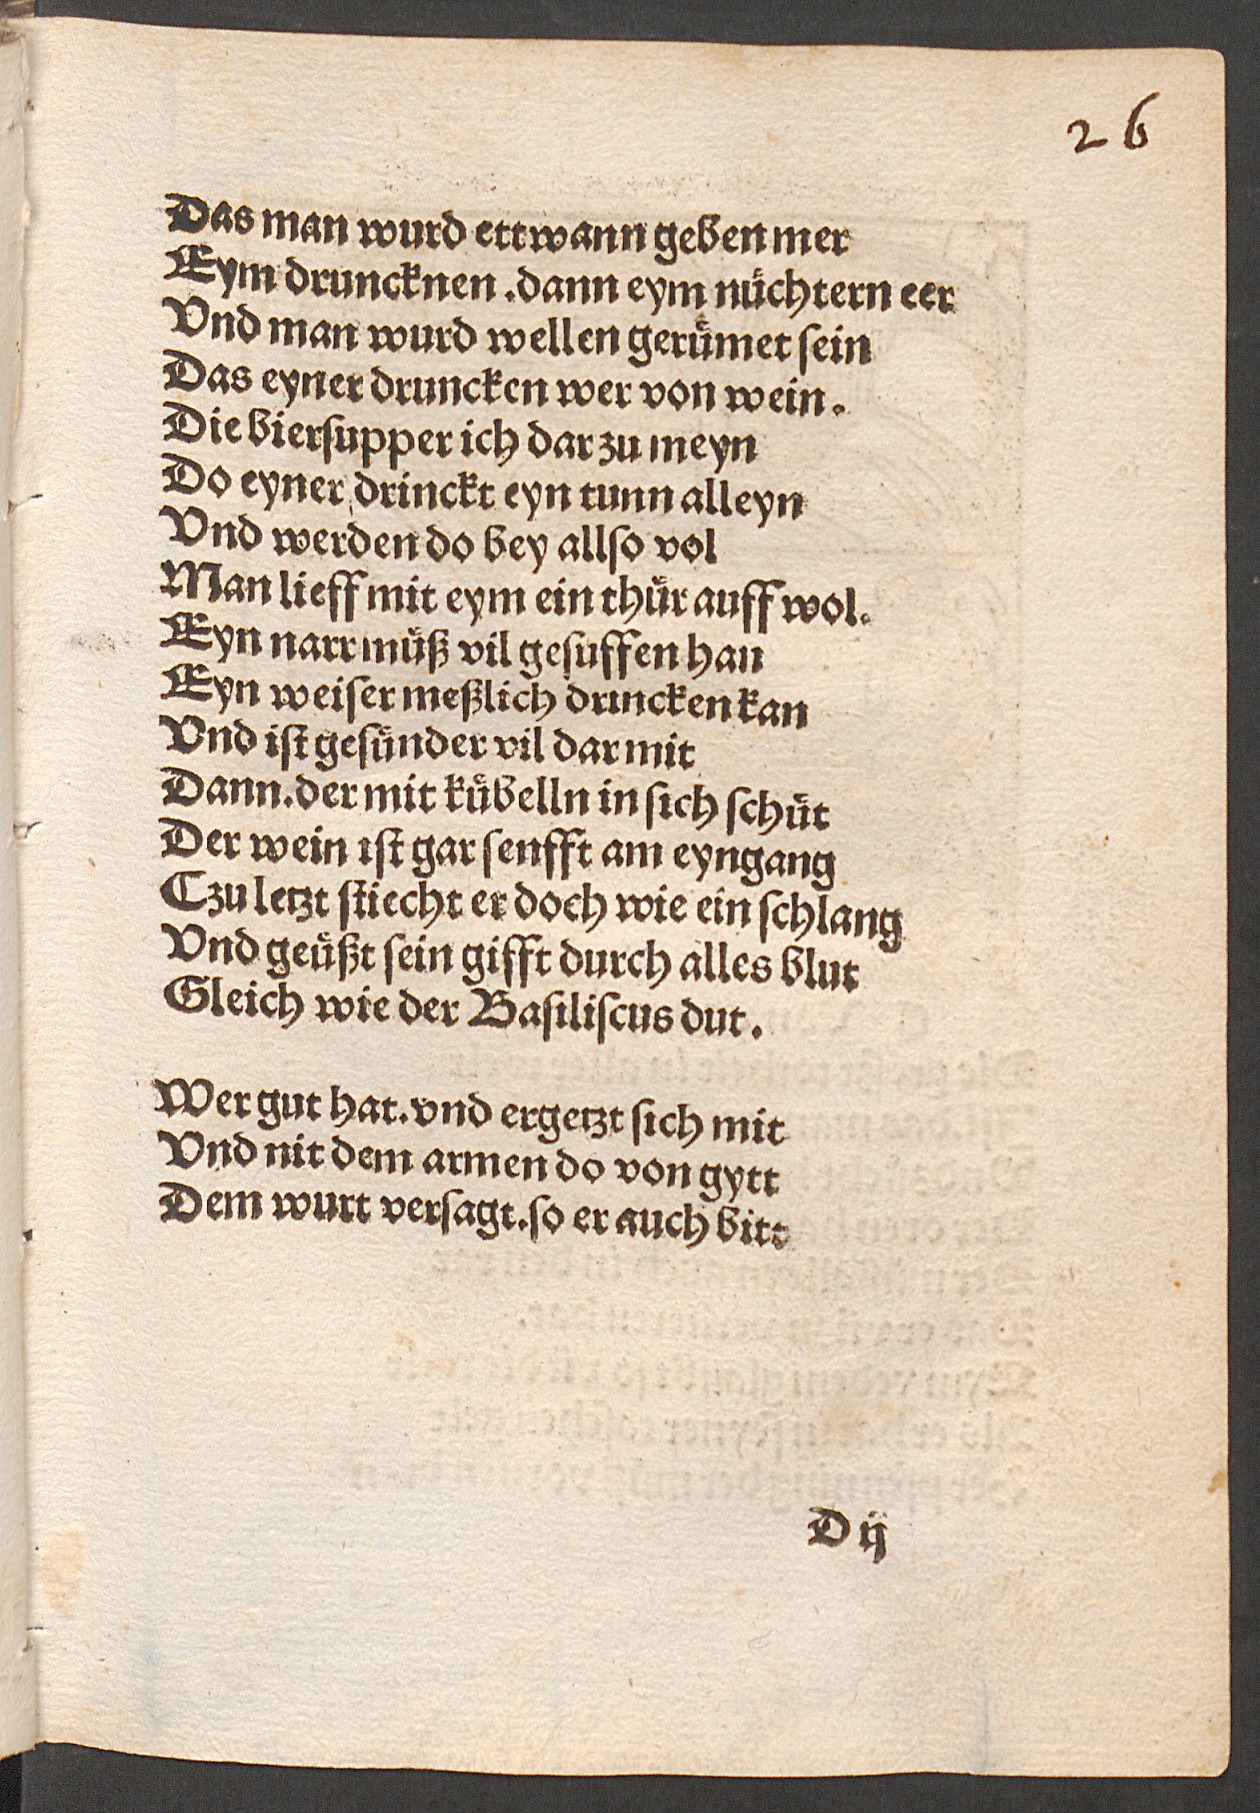 26
Das man wurd ettwann geben mer
Eym druncknen .dann eym nuͤchtern eer
Vnd man wurd wellen geruͤmet ſein
Das eyner druncken wer von wein.
Die bierſupper ich dar zu meyn
Do eyner drinckt eyn tunn alleyn
Vnd werden do bey allſo vol
Man lieff mit eym ein thuͤr auff wol.
Eyn narr muͤß vil geſuffen han
Eyn weiſer meßlich drincken kan
Vnd iſt geſuͤnder vil dar mit
Dann.der mit kuͤbelln in ſich ſchuͤt
Der wein iſt gar ſenfft am eyngang
Czu letzt ſtiecht er doch wie ein ſchlang
Vnd geuͤßt ſein gifft durch alles blut
Gleich wie der Baſiliſcus dut.
Wer gut hat.vnd ergetzt ſich mit
Vnd nit dem armen do von gytt
Dem wurt verſagt.ſo er auch bitt
D ij